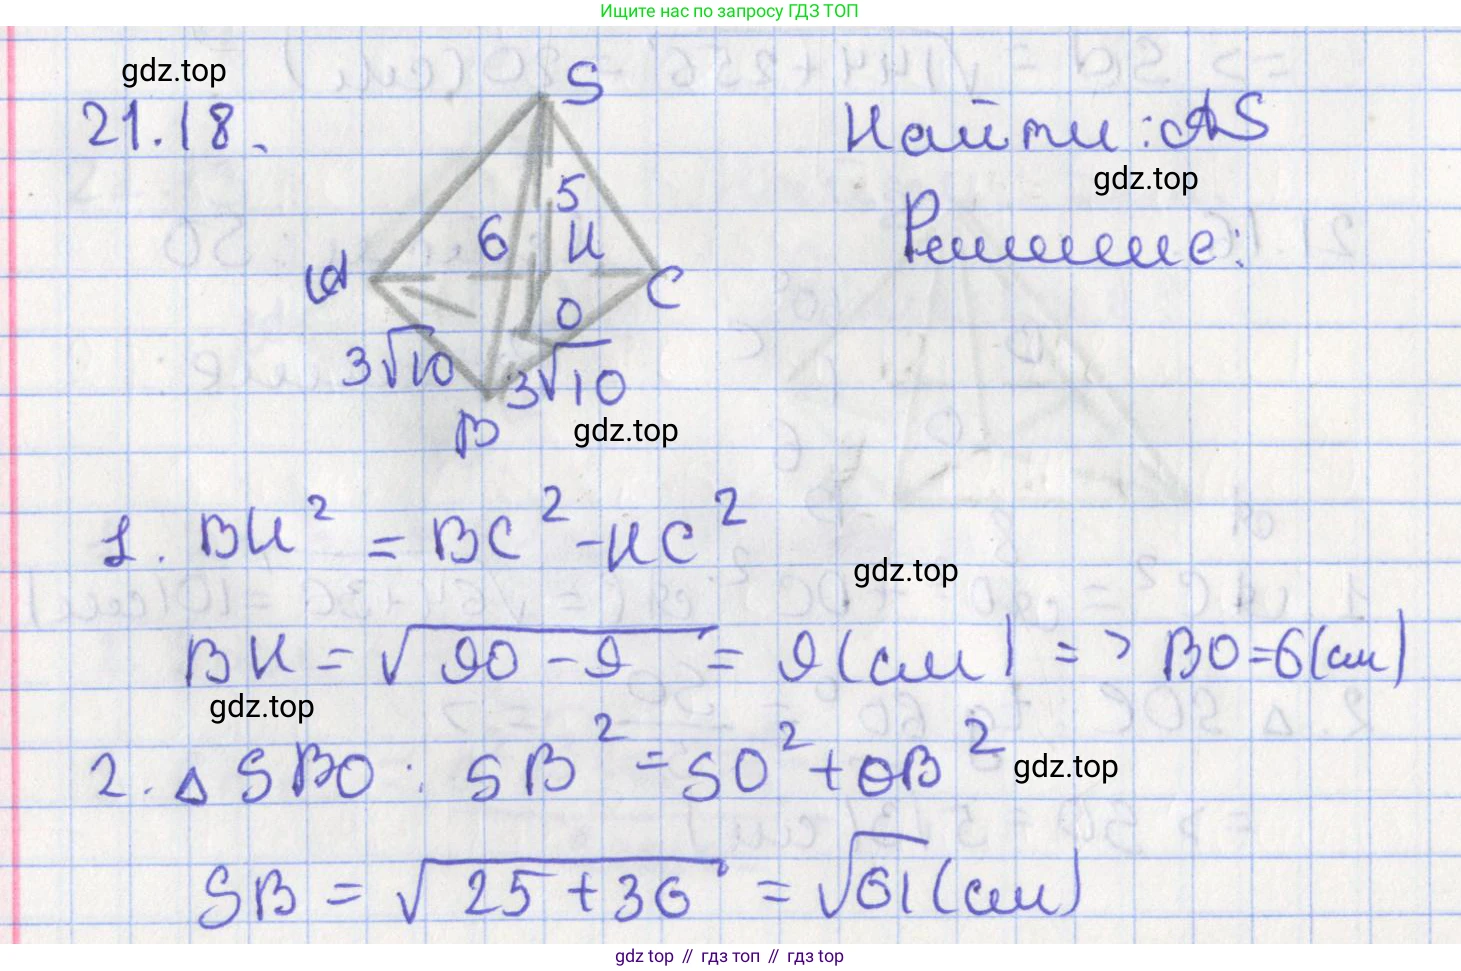 Ищите нас по запросу ГДЗ ТОП
gdz.top
21.18.
S
Найти: AS
gdz.top
5
6
K
Решение:
A
C
O
3√10
3√10
B
gdz.top
1. BK² = BC² - KC²
gdz.top
BK = √90 - 9 = 9 (см) => BO = 6 (см)
gdz.top
2. △ SBO : SB² = SO² + OB²
gdz.top
SB = √25 + 36 = √61 (см)
gdz top // гдз топ // гдз top